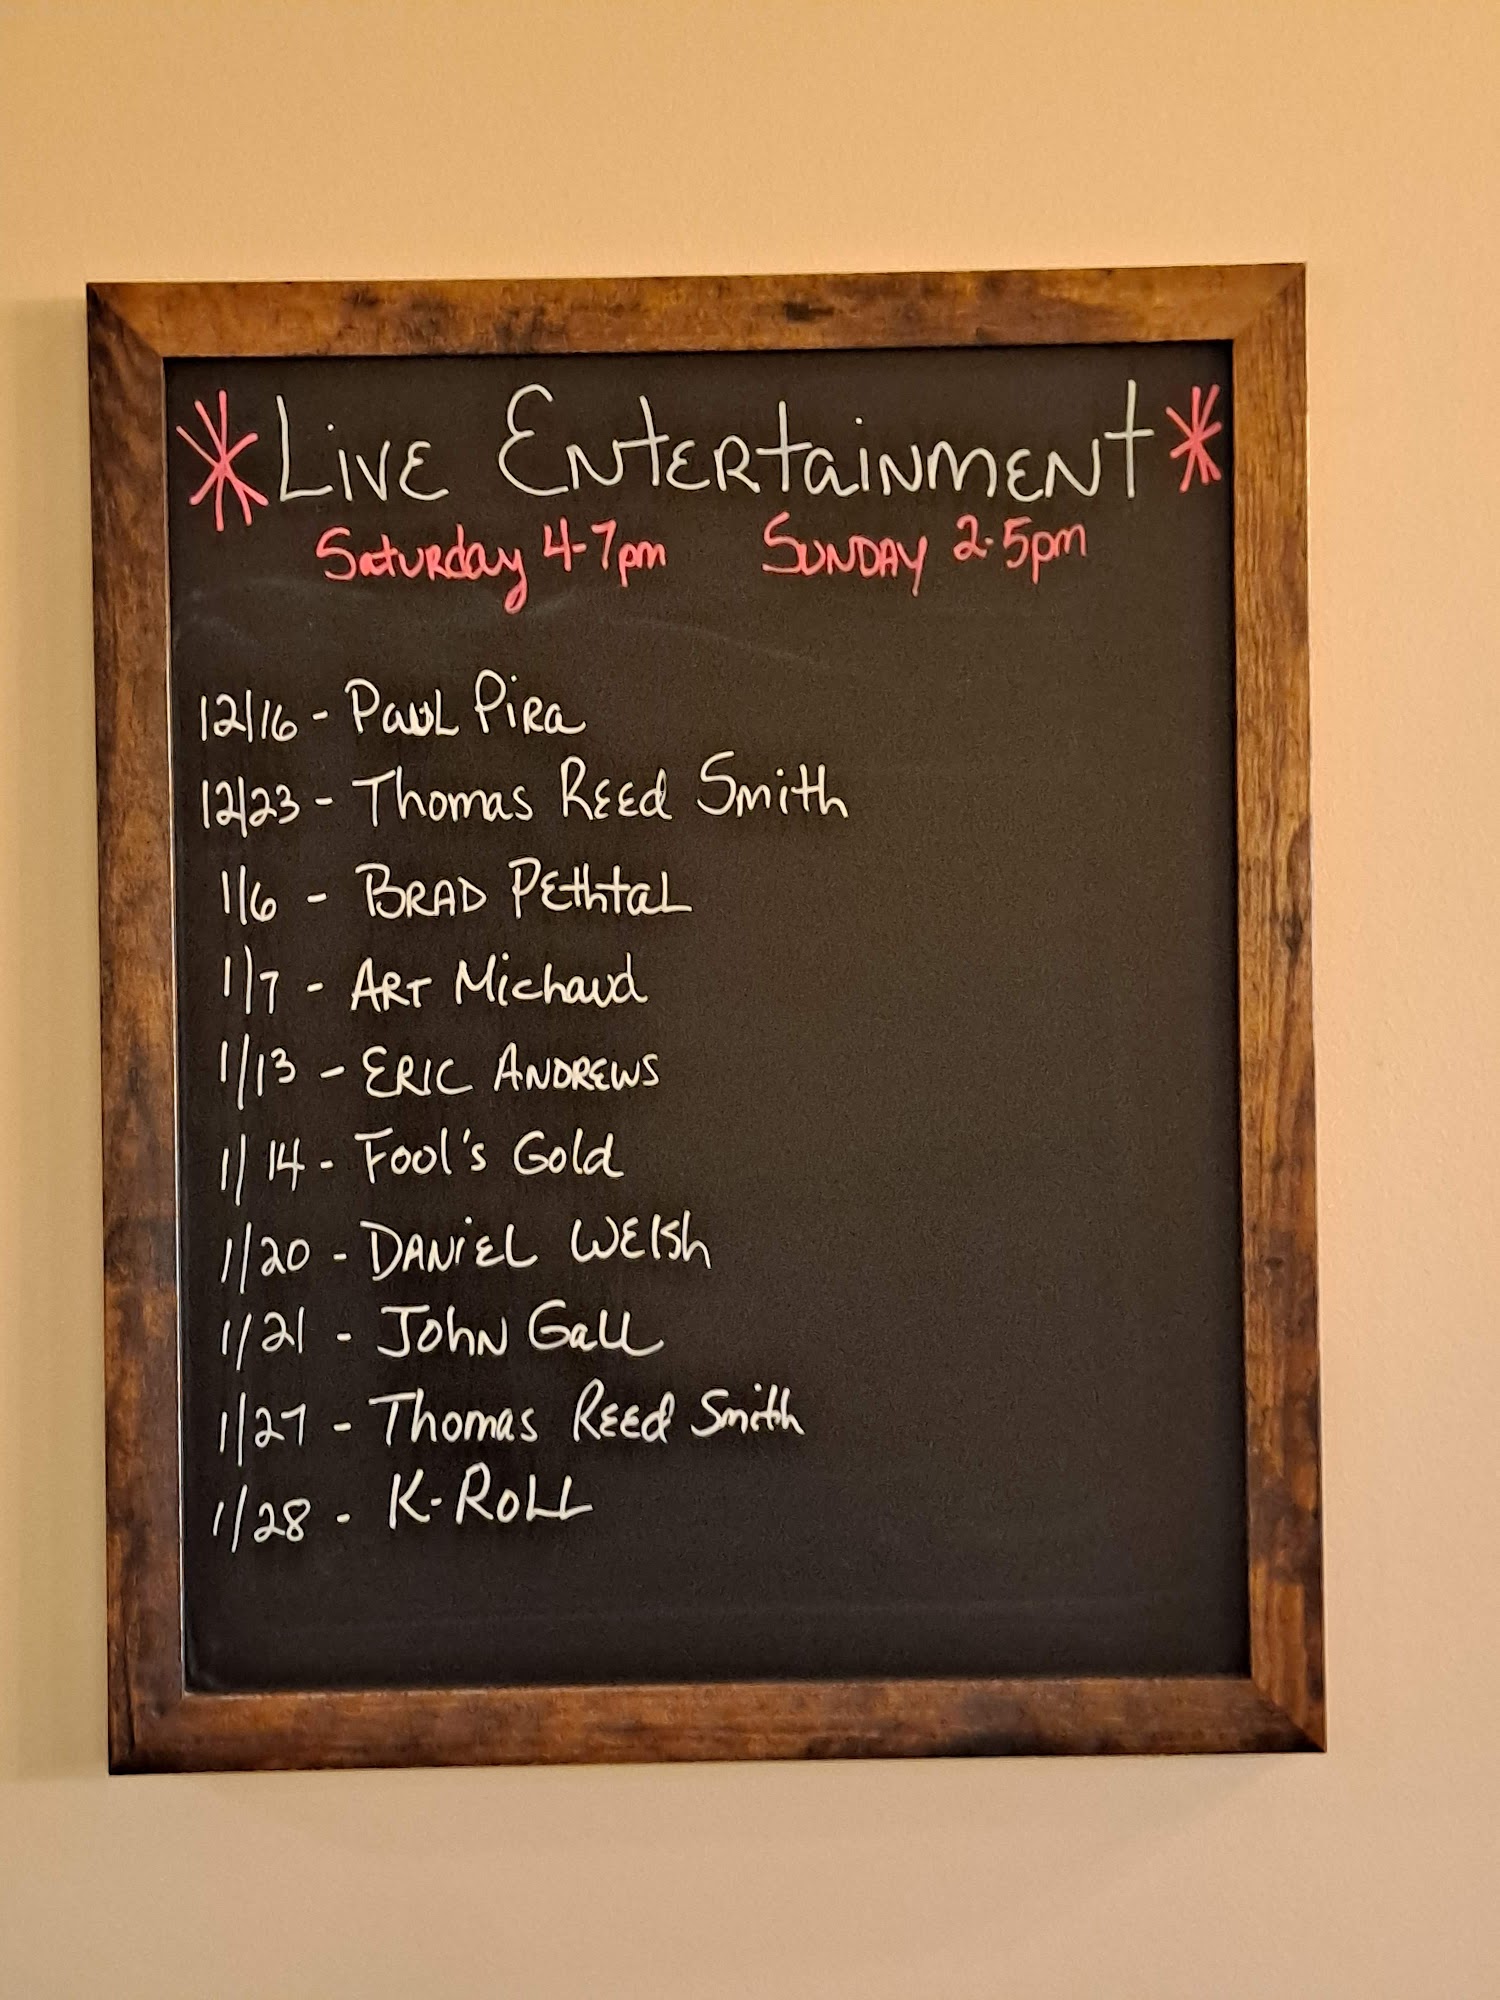 * Live Entertainment *
Saturday 4-7pm Sunday 2-5pm
12/16 - Paul Pira
12/23 - Thomas Reed Smith
1/6 - Brad Pethtal
1/7 - Art Michaud
1/13 - Eric Andrews
1/14 - Fool's Gold
1/20 - Daniel Welsh
1/21 - John Gall
1/27 - Thomas Reed Smith
1/28 - K-Roll